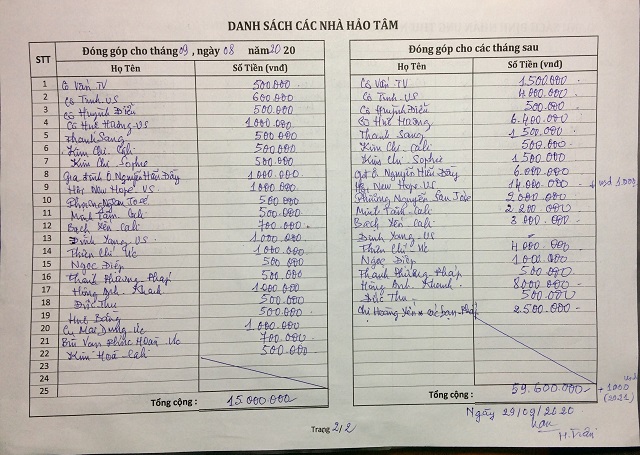 DANH SÁCH CÁC NHÀ HẢO TÂM
STT
Đóng góp cho tháng 09, ngày 08 năm 2020
Họ Tên Số Tiền (vnđ)
1 Cô Vấn TV 500.000
2 Cô Trinh US 600.000
3 Cô Huỳnh Diễn 500.000
4 Cô Huê Hương US 1.000.000
5 Thanh Sang 500.000
6 Kim Chi Cali 500.000
7 Kim Chi Sophie 500.000
8 Gia đình Ô Nguyễn Hữu Dãy 1.000.000
9 Hội New Hope US 1.000.000
10 Phương Nguyễn San Jose 500.000
11 Minh Tâm Cali 500.000
12 Bạch Yến Cali 700.000
13 Đinh Xang US 1.000.000
14 Thiên Chí Úc 1.000.000
15 Ngọc Điệp 500.000
16 Thanh Phương Pháp 500.000
17 Hồng Anh Khanh 1.000.000
18 Đức Thu 500.000
19 Huê Bằng 500.000
20 Cụ Mai Dung Úc 1.000.000
21 Bùi Vạn Phước Hoàn Úc 700.000
22 Kim Hoa Cali 500.000
23
24
25
Tổng cộng : 15.000.000
Đóng góp cho các tháng sau
Họ Tên Số Tiền (vnđ)
Cô Vấn TV 1.500.000
Cô Trinh US 4.000.000
Cô Huỳnh Diễn 500.000
Cô Huê Hương 6.400.000
Thanh Sang 1.500.000
Kim Chi Cali 500.000
Kim Chi Sophie 1.500.000
Gđ Ô Nguyễn Hữu Dãy 6.000.000
Hội New Hope US 14.000.000 + usd 1.000
Phương Nguyễn San Jose 2.000.000
Minh Tâm Cali 2.200.000
Bạch Yến Cali 3.000.000
Đinh Xang US
Thiên Chí Úc 4.000.000
Ngọc Điệp 1.000.000
Thanh Phương Pháp 500.000
Hồng Anh Khanh 8.000.000
Đức Thu 500.000
Chị Hoàng Yến các bạn Pháp 2.500.000
Tổng cộng : 59.600.000 + 1000 usd (2021)
Ngày 29/09/2020
H.Trân
Trang 2/2